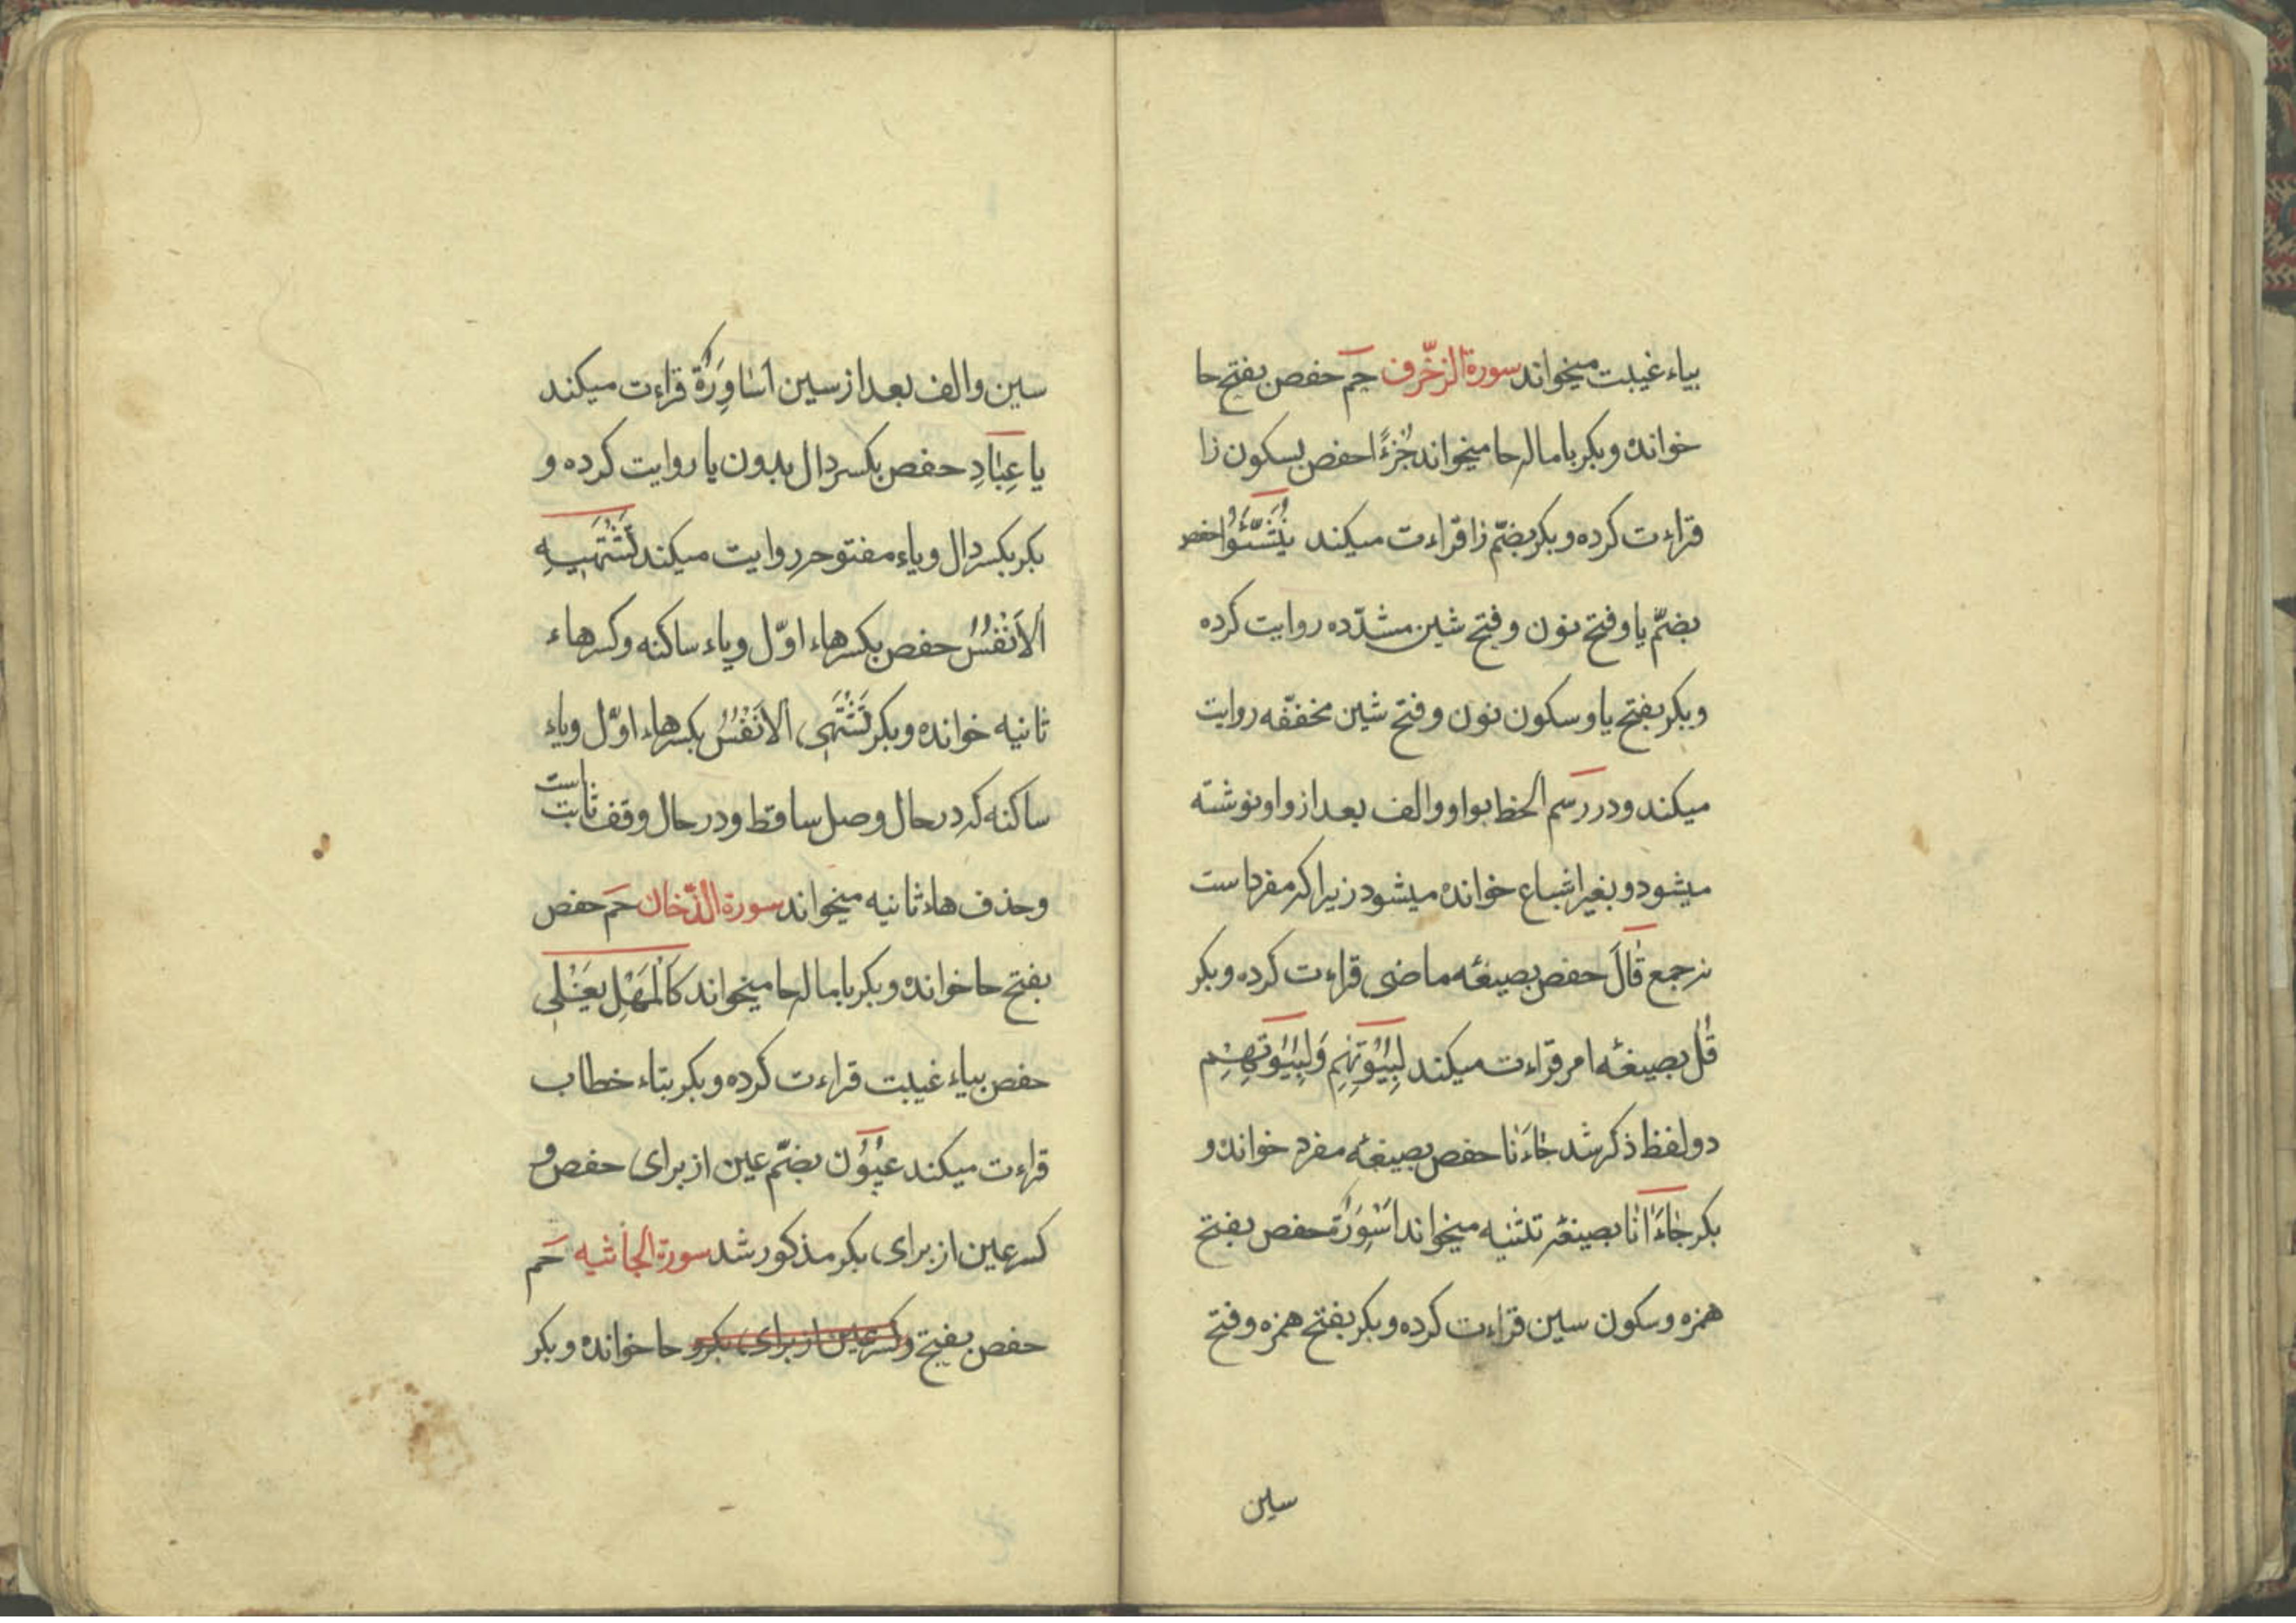 بیاء غیبت میخواند سورة الزخّرف حم حفص بفتح حا
خوانده و بکر باماله حا میخواند جُزْءًا حفص بسکون زا
قراءت کرده و بکر بضمّ زا قراءت میکند یُنَشَّؤُا حفص
بضمّ یا و فتح نون و فتح شین مشدّده روایت کرده
و بکر بفتح یا و سکون نون و فتح شین مخففّه روایت
میکند و در رسم الخط بواو و الف بعد از واو نوشته
میشود و بغیر اشباع خوانده میشود زیرا که مفرد است
نه جمع قَالَ حفص بصیغهٔ ماضی قراءت کرده و بکر
قُل بصیغهٔ امر قراءت میکند لِبُیُوتِهِم وَلِبُیُوتِهِم
دو لفظ ذکر شد جَاءَنا حفص بصیغهٔ مفرد خوانده و
بکر جَاءَانَا بصیغهٔ تثنیه میخواند اَسْوِرَةٌ حفص بفتح
همزه و سکون سین قراءت کرده و بکر بفتح همزه و فتح
سین
سین و الف بعد از سین اَسَاوِرَةٌ قراءت میکند
یا عِبَادِ حفص بکسر دال بدون یا روایت کرده و
بکر بکسر دال و یاء مفتوحه روایت میکند تَشْتَهِیهِ
الاَنْفُسُ حفص بکسر هاء اوّل و یاء ساکنه و کسر هاء
ثانیه خوانده و بکر تَشْتَهِی الاَنْفُسُ بکسر هاء اوّل و یاء
ساکنه که در حال وصل ساقط و در حال وقف ثابت است
و حذف هاء ثانیه میخواند سورة الدّخان حم حفص
بفتح حا خوانده و بکر باماله حا میخواند کَالْمُهْلِ یَغْلِی
حفص بیاء غیبت قراءت کرده و بکر بتاء خطاب
قراءت میکند عُیُون بضمّ عین از برای حفص و
کسر عین از برای بکر مذکور شد سورة الجاثیه حم
حفص بفتح و کسر عین از برای بکر و حا خوانده و بکر